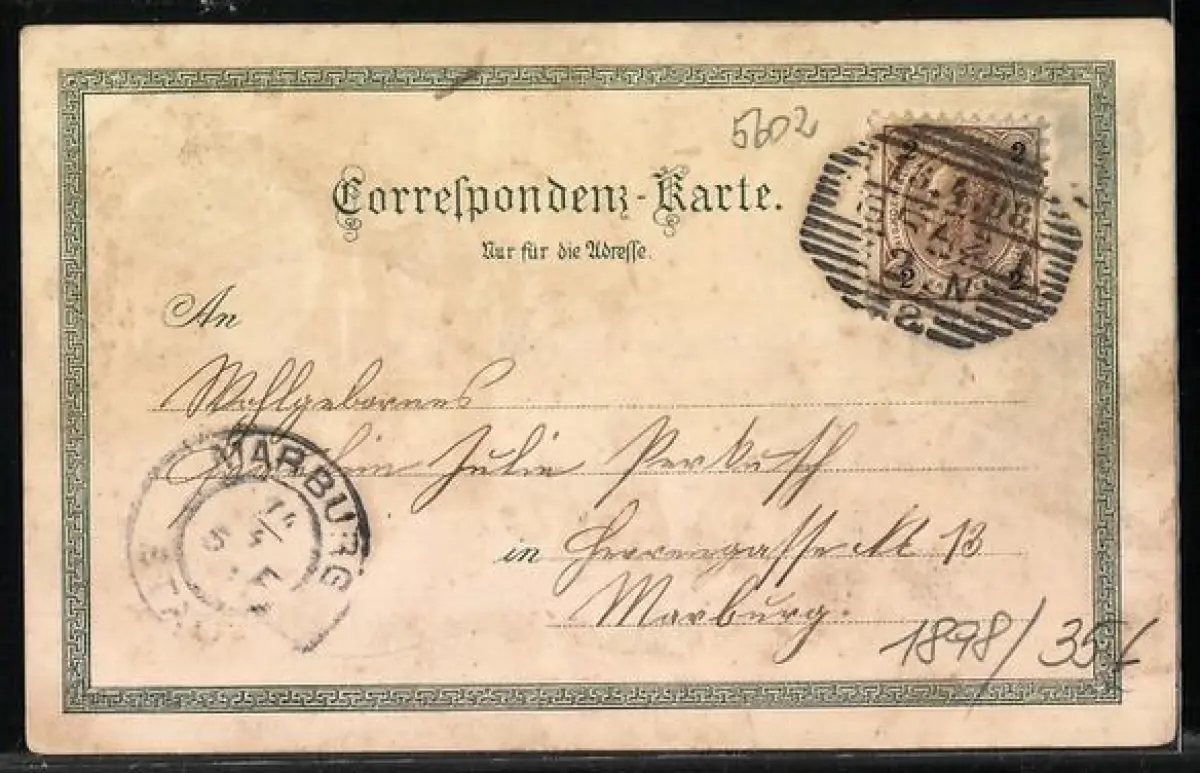 5602
Correſpondenz-Karte.
Nur für die Adreſſe.
2 2
2 2
An
Wohlgebornes
Fräulein Julie Perkusch
in Herrengasse № 13
Marburg.
MARBURG
1898/35